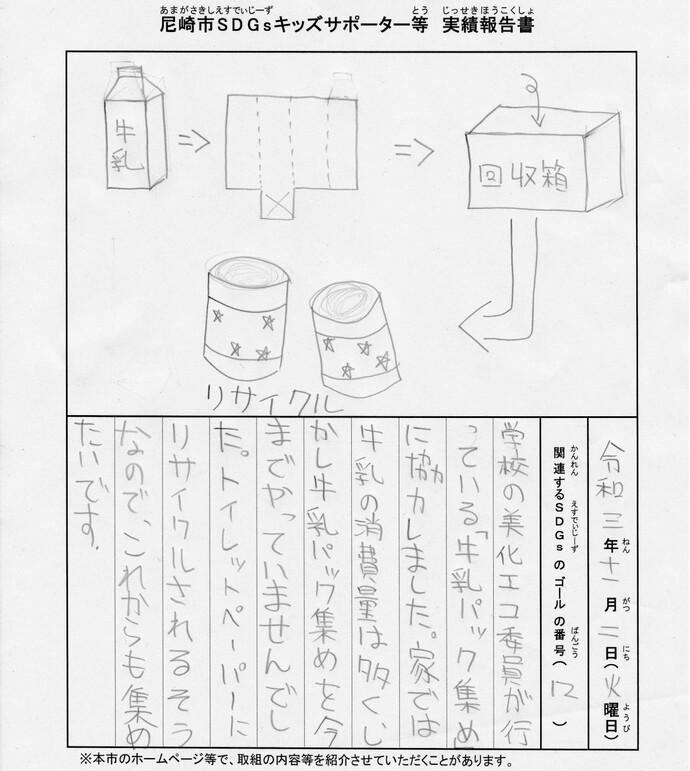 あまがさきしえすでぃじーず とう じっせきほうこくしょ
尼崎市SDGsキッズサポーター等 実績報告書
牛乳
回収箱
リサイクル
令和三年十一月二日(火曜日)
ねん がつ にち ようび
関連するSDGsのゴールの番号(12)
かんれん えすでぃじーず ばんごう
学校の美化エコ委員が行
っている「牛乳パック集め」
に協力しました。家では
牛乳の消費量は多くし
かし牛乳パック集めを今
までやっていませんでし
た。トイレットペーパーに
リサイクルされるそう
なので、これからも集め
たいです。
※本市のホームページ等で、取組の内容等を紹介させていただくことがあります。